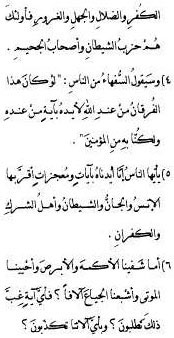 الكفر والضلال والجهل والغرور فأولئك
هم حزب الشيطان وأصحاب الجحيم.
٤) وسيقول السفهاء من الناس: "لو كان هذا
الفرقان من عند الله لأيده بآية من عنده
ولكنا به من المؤمنين".
٥) يأيها الناس إنا أيدناه بآيات ومعجزات أقر بها
الإنس والجان والشيطان وأهل الشرك
والكفران.
٦) أما شفينا الأكمه والأبرص وأحيينا
الموتى وأشبعنا الجياع آلافا؟ فأي آية غب
ذلك تطلبون؟ وبأي آلائنا تكذبون؟